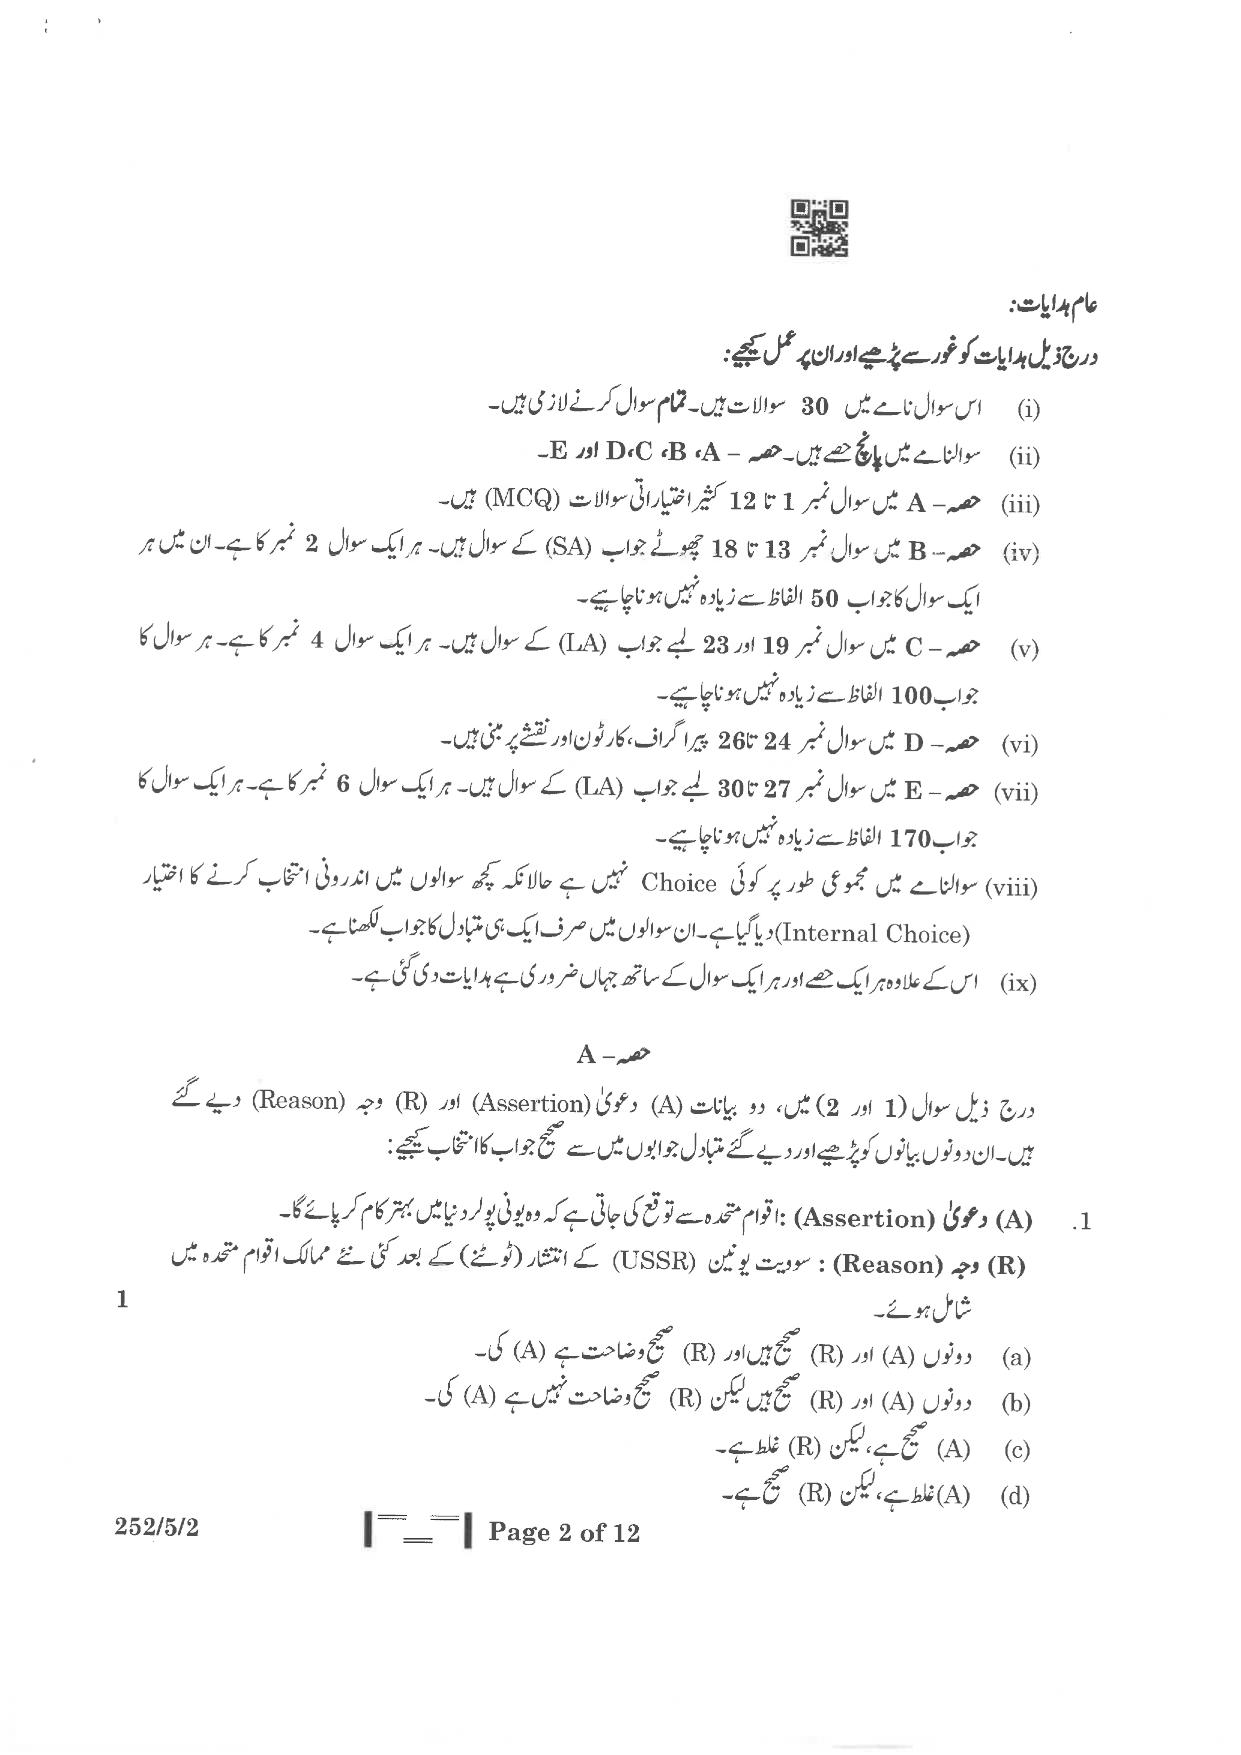 عام ہدایات:
درج ذیل ہدایات کو غور سے پڑھیے اور ان پر عمل کیجیے:
(i) اس سوال نامے میں 30 سوالات ہیں۔ تمام سوال کرنے لازمی ہیں۔
(ii) سوالنامے میں پانچ حصے ہیں۔ حصہ – A، B، C،D اور E۔
(iii) حصہ – A میں سوال نمبر 1 تا 12 کثیر اختیاراتی سوالات (MCQ) ہیں۔
(iv) حصہ – B میں سوال نمبر 13 تا 18 چھوٹے جواب (SA) کے سوال ہیں۔ ہر ایک سوال 2 نمبر کا ہے۔ ان میں ہر
ایک سوال کا جواب 50 الفاظ سے زیادہ نہیں ہونا چاہیے۔
(v) حصہ – C میں سوال نمبر 19 اور 23 لمبے جواب (LA) کے سوال ہیں۔ ہر ایک سوال 4 نمبر کا ہے۔ ہر سوال کا
جواب 100 الفاظ سے زیادہ نہیں ہونا چاہیے۔
(vi) حصہ – D میں سوال نمبر 24 تا 26 پیراگراف، کارٹون اور نقشے پر مبنی ہیں۔
(vii) حصہ – E میں سوال نمبر 27 تا 30 لمبے جواب (LA) کے سوال ہیں۔ ہر ایک سوال 6 نمبر کا ہے۔ ہر ایک سوال کا
جواب 170 الفاظ سے زیادہ نہیں ہونا چاہیے۔
(viii) سوالنامے میں مجموعی طور پر کوئی Choice نہیں ہے حالانکہ کچھ سوالوں میں اندرونی انتخاب کرنے کا اختیار
(Internal Choice) دیا گیا ہے۔ ان سوالوں میں صرف ایک ہی متبادل کا جواب لکھنا ہے۔
(ix) اس کے علاوہ ہر ایک حصے اور ہر ایک سوال کے ساتھ جہاں ضروری ہے ہدایات دی گئی ہے۔
حصہ – A
درج ذیل سوال (1 اور 2) میں، دو بیانات (A) دعویٰ (Assertion) اور (R) وجہ (Reason) دیے گئے
ہیں۔ ان دونوں بیانوں کو پڑھیے اور دیے گئے متبادل جوابوں میں سے صحیح جواب کا انتخاب کیجیے:
1. (A) دعویٰ (Assertion) : اقوام متحدہ سے توقع کی جاتی ہے کہ وہ یونی پولر دنیا میں بہتر کام کر پائے گا۔
(R) وجہ (Reason) : سوویت یونین (USSR) کے انتشار (ٹوٹنے) کے بعد کئی نئے ممالک اقوام متحدہ میں
شامل ہوئے۔ 1
(a) دونوں (A) اور (R) صحیح ہیں اور (R) صحیح وضاحت ہے (A) کی۔
(b) دونوں (A) اور (R) صحیح ہیں لیکن (R) صحیح وضاحت نہیں ہے (A) کی۔
(c) (A) صحیح ہے، لیکن (R) غلط ہے۔
(d) (A) غلط ہے، لیکن (R) صحیح ہے۔
252/5/2 Page 2 of 12